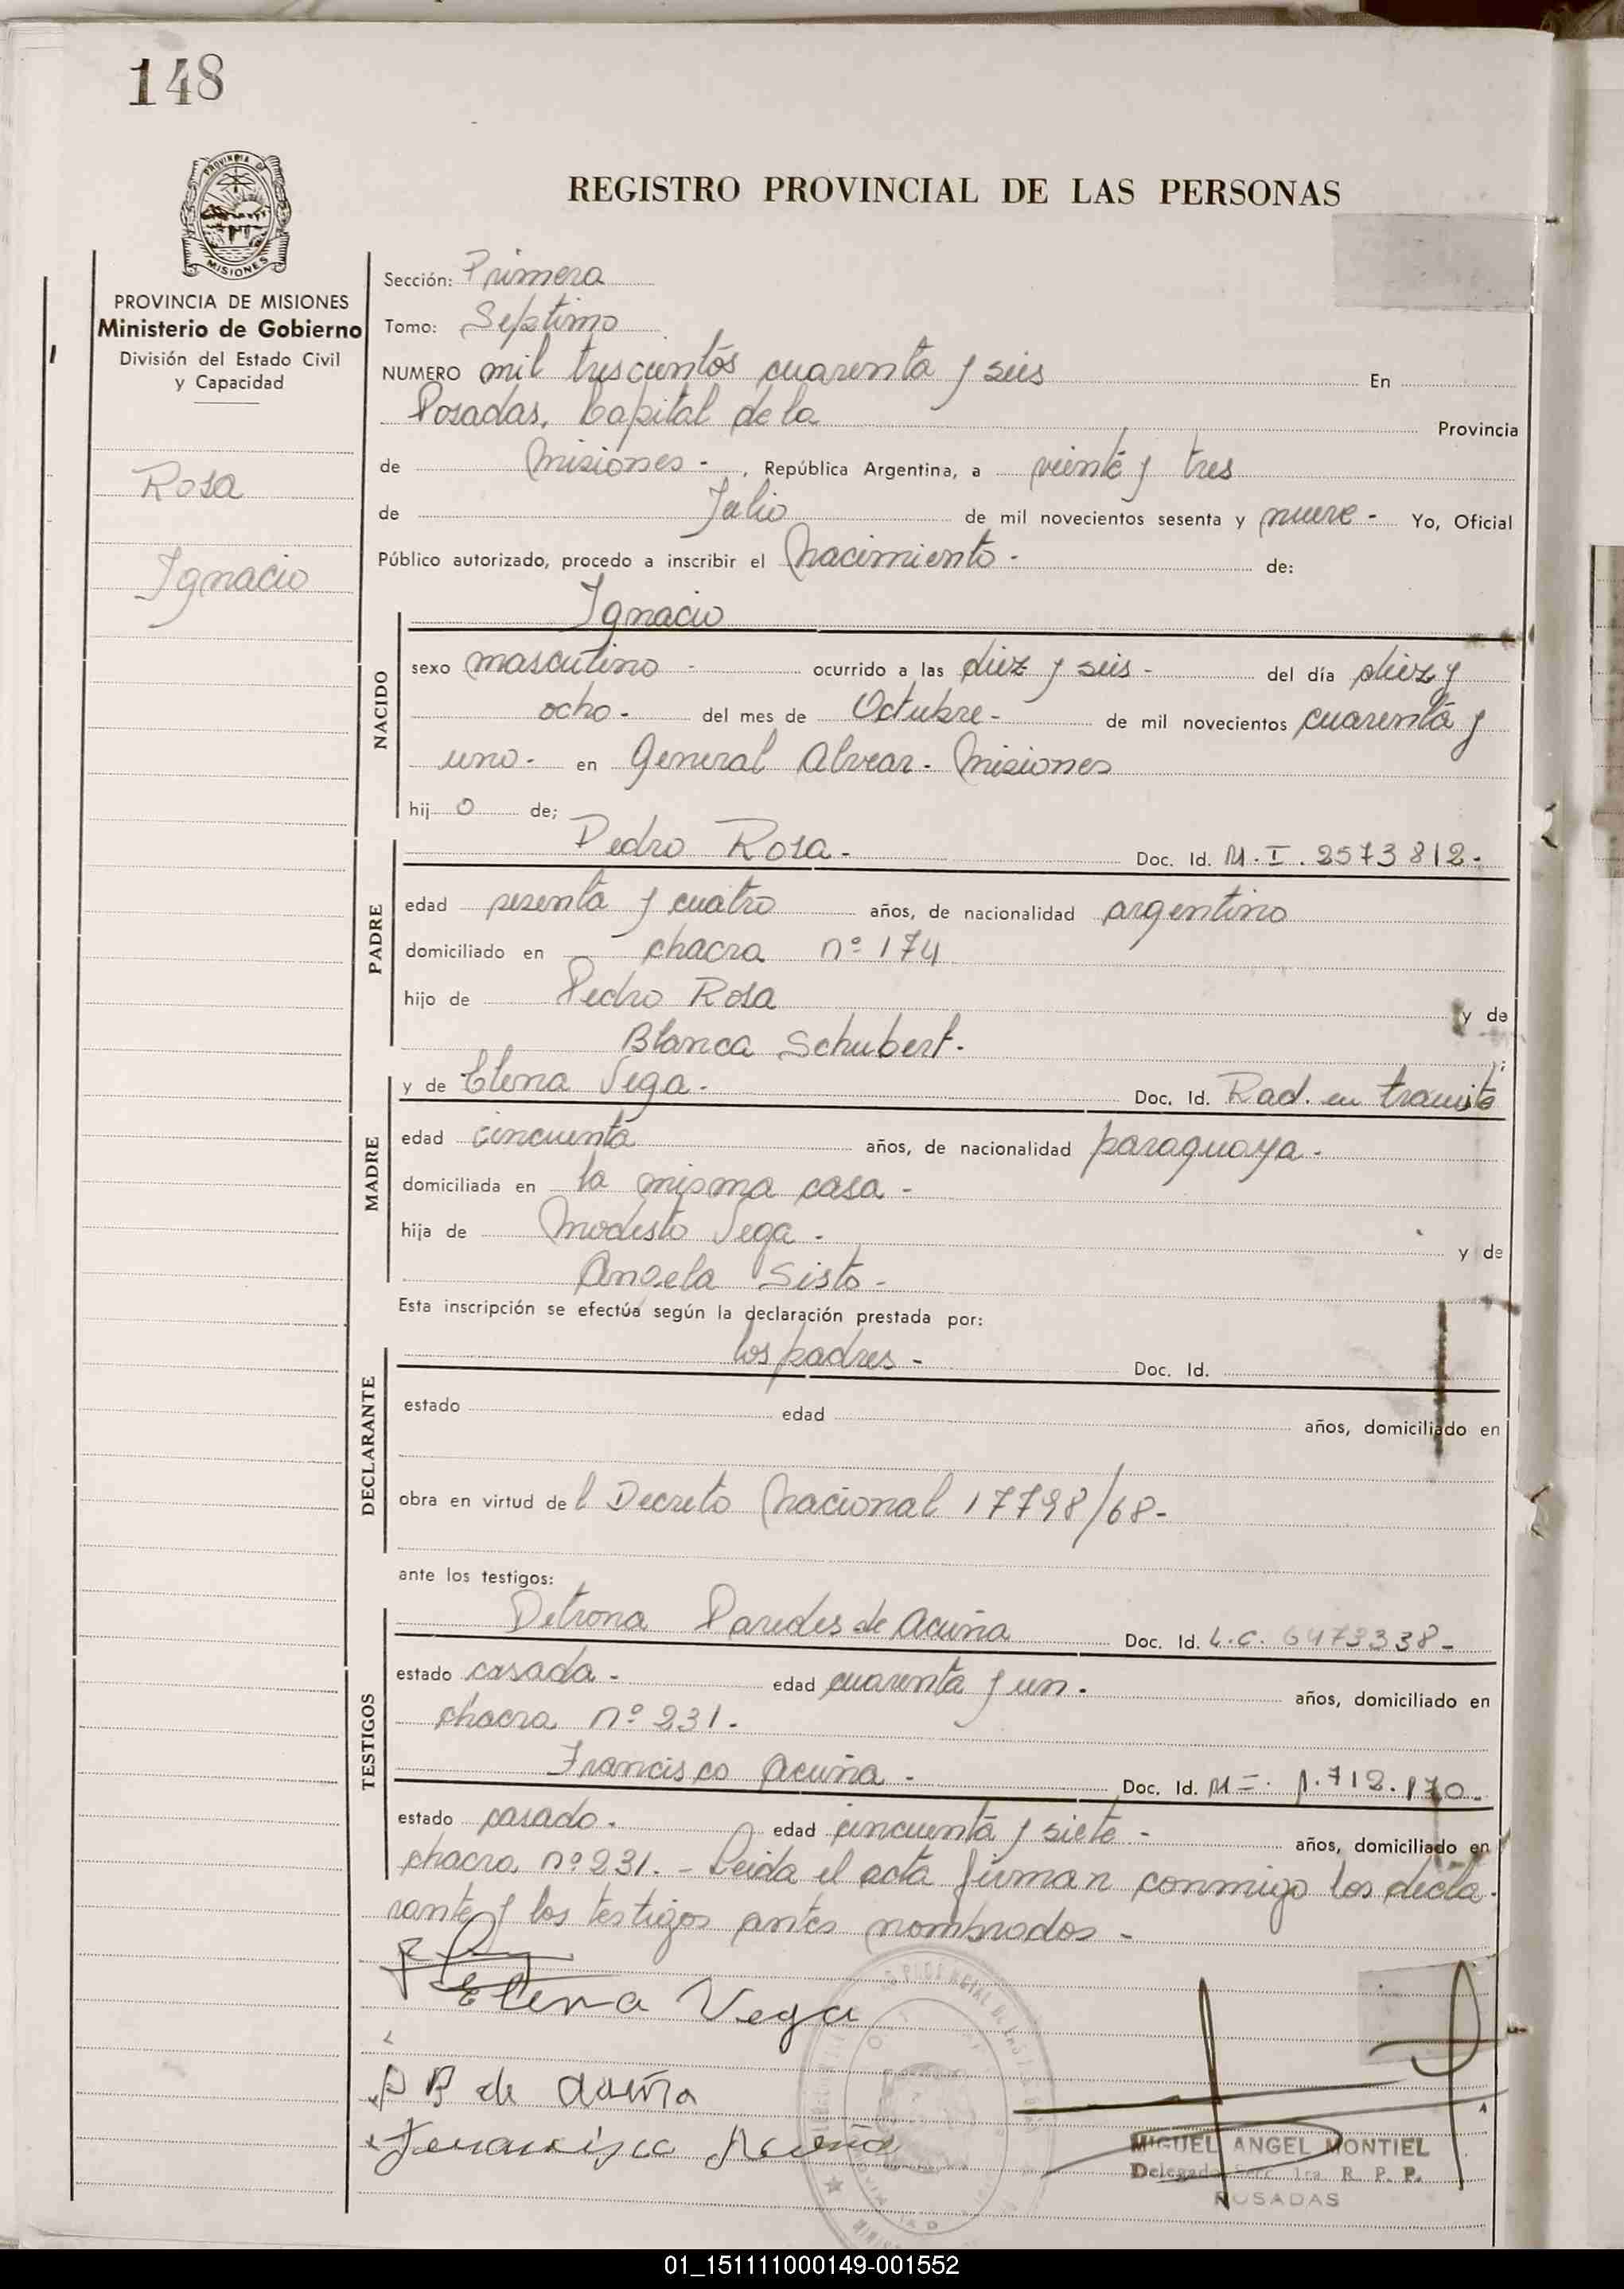 148
PROVINCIA DE
MISIONES
PROVINCIA DE MISIONES
Ministerio de Gobierno
División del Estado Civil
y Capacidad
Rosa
Ignacio
REGISTRO PROVINCIAL DE LAS PERSONAS
Sección: Primera
Tomo: Septimo
NUMERO mil trescientos cuarenta y seis En
Posadas, Capital de la Provincia
de Misiones - , República Argentina, a veinte y tres
de Julio de mil novecientos sesenta y nueve - Yo, Oficial
Público autorizado, procedo a inscribir el Nacimiento - de:
NACIDO
Ignacio
sexo masculino - ocurrido a las diez y seis - del día diez y
ocho - del mes de Octubre - de mil novecientos cuarenta y
uno - en General Alvear - Misiones
hij o de;
PADRE
Pedro Rosa - Doc. Id. M. I. 2573812 -
edad sesenta y cuatro años, de nacionalidad argentino
domiciliado en chacra nº 174
hijo de Pedro Rosa y de
Blanca Schubert -
MADRE
y de Elena Vega - Doc. Id. Rad. en tramite
edad cincuenta años, de nacionalidad paraguaya -
domiciliada en la misma casa -
hija de Modesto Vega - y de
Angela Sisto -
Esta inscripción se efectúa según la declaración prestada por:
DECLARANTE
los padres - Doc. Id.
estado edad años, domiciliado en
obra en virtud de l Decreto Nacional 17798/68 -
ante los testigos:
TESTIGOS
Petrona Paredes de Acuña Doc. Id. L. C. 6473338 -
estado casada - edad cuarenta y un - años, domiciliado en
chacra nº 231 -
Francisco Acuña - Doc. Id. 1.712.170 -
estado casado - edad cincuenta y siete - años, domiciliado en
chacra nº 231. - Leida el acta firman conmigo los decla-
rante y los testigos antes nombrados -
Elena Vega
P P de Acuña
Francisco Acuña
MIGUEL ANGEL MONTIEL
Delegado Secc. 1ra. R. P. P.
POSADAS
01_151111000149-001552